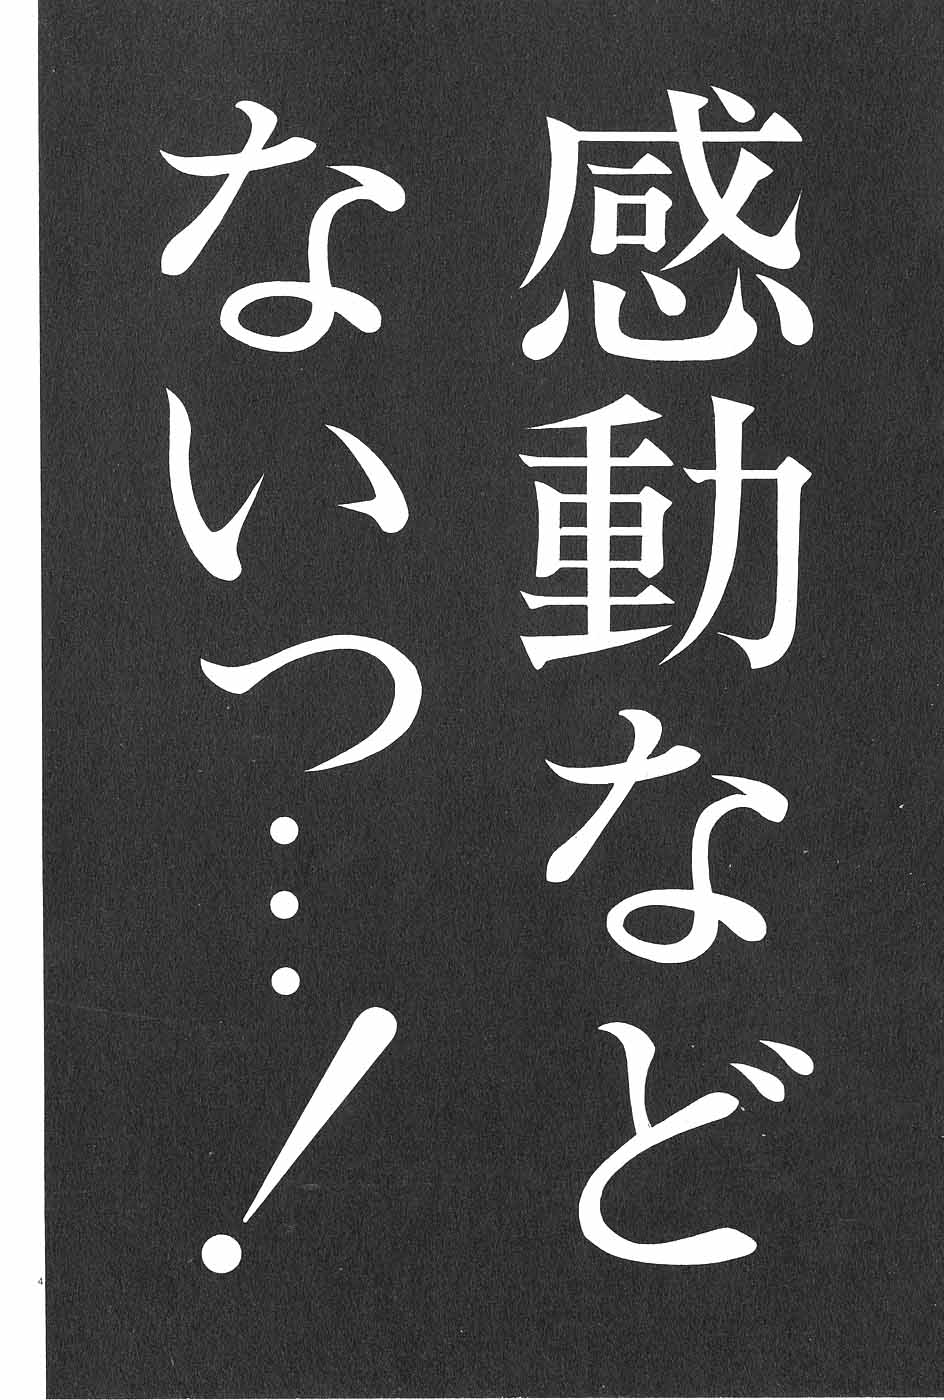 感動など
ないっ…！
4